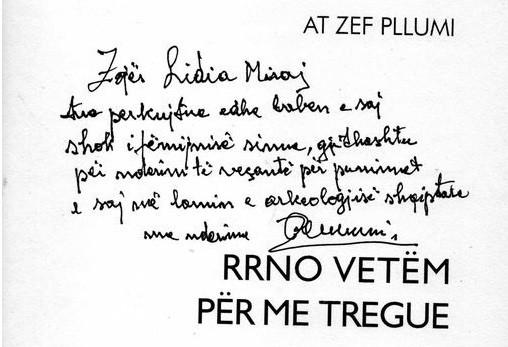 AT ZEF PLLUMI
Zojës Lidia Miraj
tue perkujtue edhe baben e saj
shok i fëmijnisë sime, gjithashtu
për nderim të veçantë për punimet
e saj në lamin e arkeologjisë shqiptare
me nderime
RRNO VETËM
PËR ME TREGUE